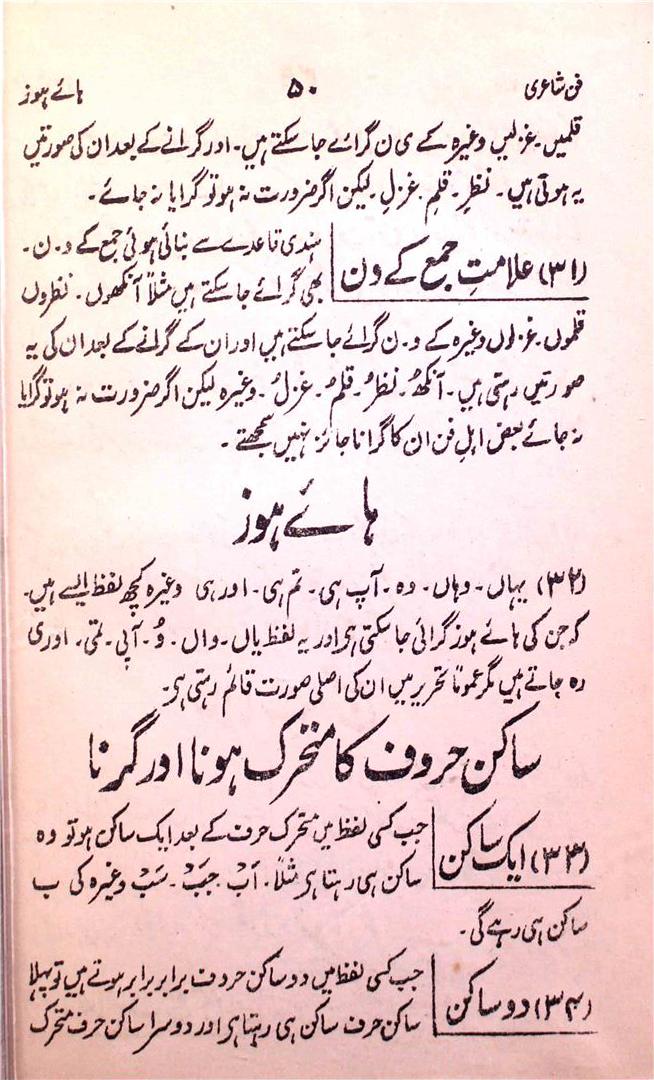 فن شاعری ۵۰ ہائے ہوز
قلمیں۔ غزلیں وغیرہ کے ی ن گرائے جا سکتے ہیں۔ اور گرانے کے بعد ان کی صورتیں
یہ ہوتی ہیں۔ نظرِ۔ قلمِ۔ غزلِ۔ لیکن اگر ضرورت نہ ہو تو گرایا نہ جائے۔
(۳۱) علامتِ جمع کے ون
ہندی قاعدے سے بنائی ہوئی جمع کے و۔ ن۔
بھی گرائے جا سکتے ہیں مثلاً آنکھوں۔ نظروں
قلموں۔ غزلوں وغیرہ کے و۔ ن گرائے جا سکتے ہیں اور ان کے گرانے کے بعد ان کی یہ
صورتیں رہتی ہیں۔ آنکھُ۔ نظرُ۔ قلمُ۔ غزلُ۔ وغیرہ لیکن اگر ضرورت نہ ہو تو گرایا
نہ جائے بعض اہلِ فن ان کا گرانا جائز نہیں سمجھتے۔
ہائے ہوز
(۳۲) یہاں۔ وہاں۔ وہ۔ آپ ہی۔ تم ہی۔ اور ہی وغیرہ کچھ لفظ ایسے ہیں۔
کہ جن کی ہائے ہوز گرائی جا سکتی ہی اور یہ لفظ یاں۔ واں۔ وُ۔ آپی۔ تمی۔ اوری
رہ جاتے ہیں مگر عموماً تحریر میں ان کی اصلی صورت قائم رہتی ہی۔
ساکن حروف کا متحرک ہونا اور گرنا
(۳۳) ایک ساکن
جب کسی لفظ میں متحرک حرف کے بعد ایک ساکن ہو تو وہ
ساکن ہی رہتا ہی مثلاً۔ اَبْ۔ جَبْ۔ سَبْ وغیرہ کی ب
ساکن ہی رہے گی۔
(۳۴) دو ساکن
جب کسی لفظ میں دو ساکن حروف برابر برابر ہوتے ہیں تو پہلا
ساکن حرف ساکن ہی رہتا ہی اور دوسرا ساکن حرف متحرک